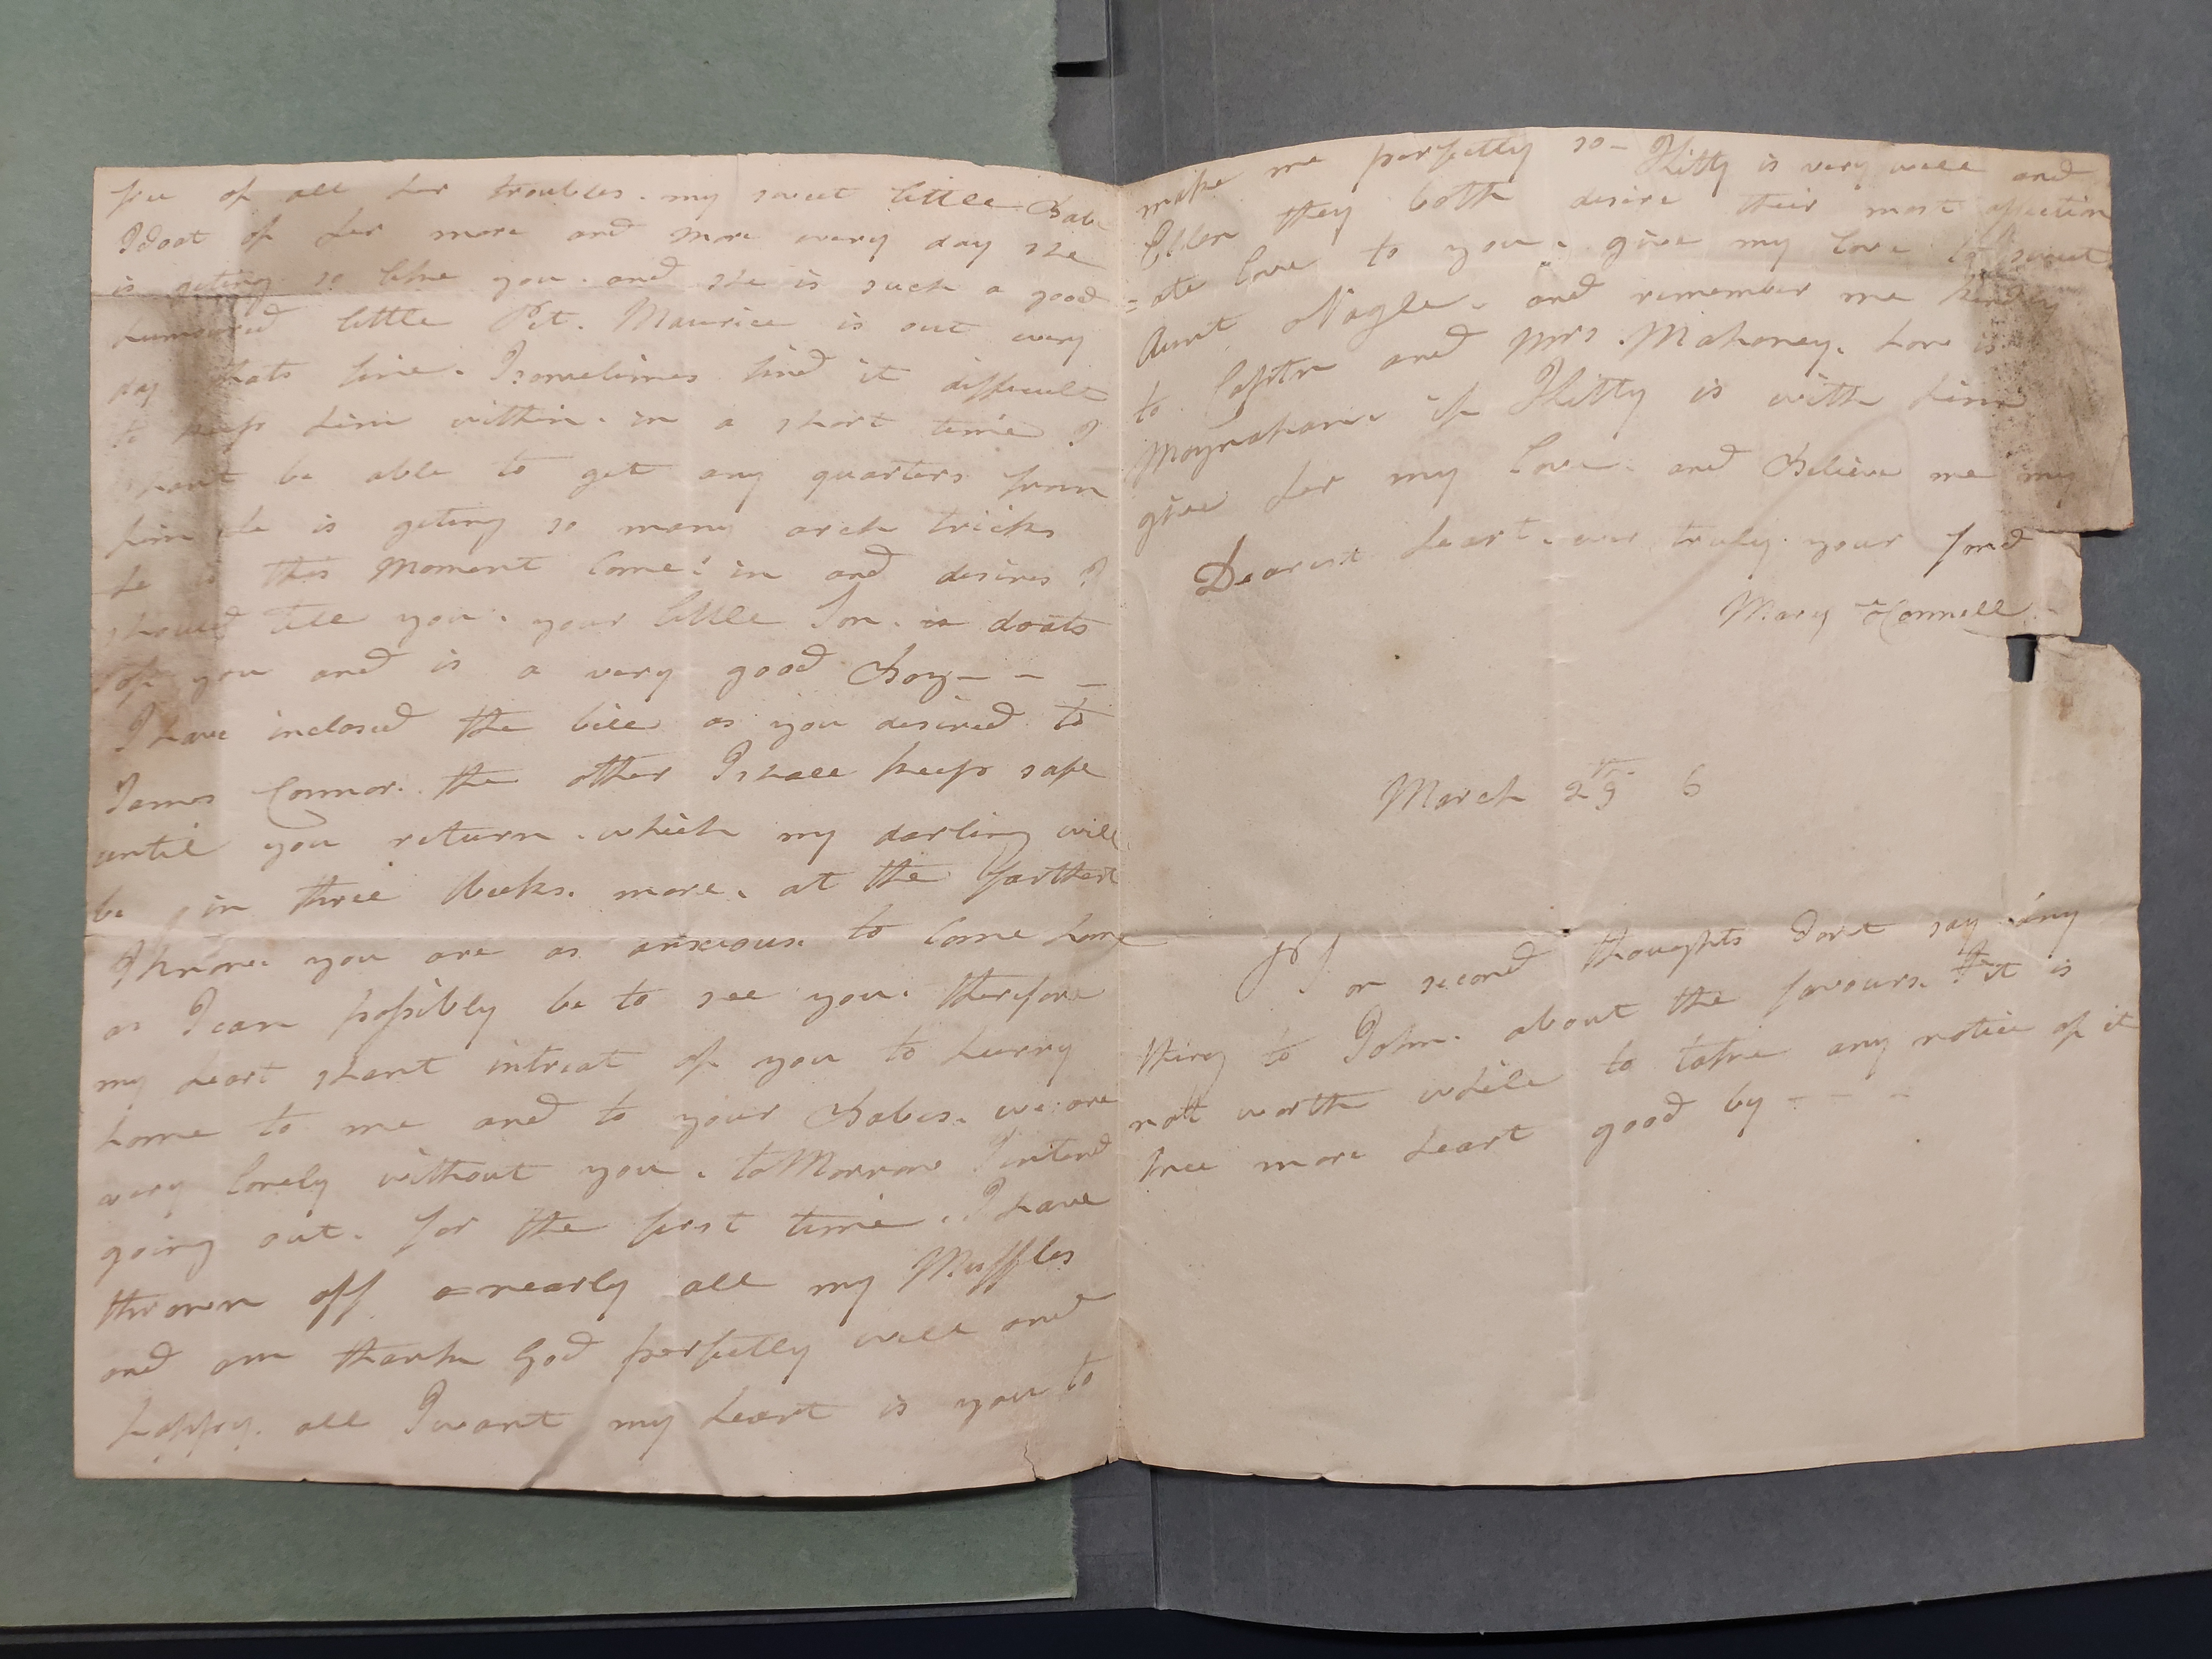 free of all her troubles. my sweet little Babe
I doat of her more and more every day she
is geting so like you. and she is such a good
humoured little Pet. Maurice is out every
day thats fine. I sometimes find it difficult
to keep him within. in a short time I
shant be able to get any quarters from
him he is geting so many arch tricks
he is this Moment Come in and desires I
should tell you. your little Son. is doats
of you and is a very good Boy - - -
I have inclosed the bill as you desired to
James Connor. the other I shall keep safe
until you return. which my darling will
be in three Weeks. more. at the farthest
I know you are as anxious. to Come home
as I can possibly be to see you. therefore
my heart shant intreat of you to hurry
home to me and to your Babes. we are
very lonely without you. to Morrow I intend
going out. for the first time. I have
thrown off nearly all my Muffles
and am thank God perfectly well and
happy. all I want my heart is you to
make me perfectly so - Kitty is very well and
Ellen they both desire their most affection
=ate love to you. give my love to sweet
Aunt Nagle. and remember me kindly
to Captn and Mrs. Mahoney. how is
Moynahan. if Kitty is with him
give her my love. and Believe me my
Dearest heart. ever truly your fond
Mary O Connell
March 29th 6
PS on second thoughts dont say any
thing to John. about the favours. it is
not worth while to take any notice of it
once more heart good by - - -